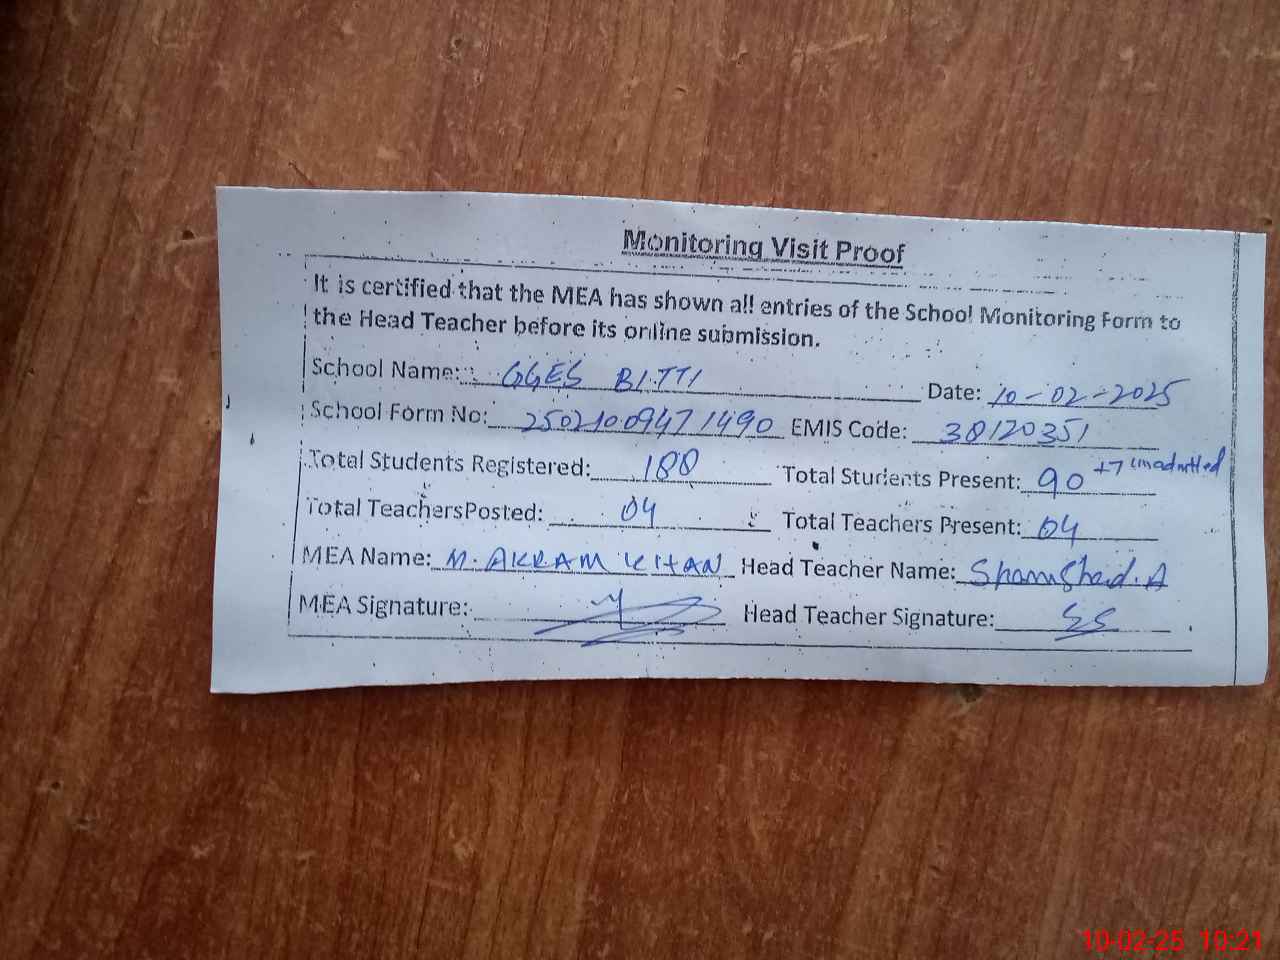 Monitoring Visit Proof
It is certified that the MEA has shown all entries of the School Monitoring Form to
the Head Teacher before its online submission.
School Name: GGES BITTI Date: 10-02-2025
School Form No: 25021009471490 EMIS Code: 38120351
Total Students Registered: 188 Total Students Present: 90 +7 unadmitted
Total TeachersPosted: 04 Total Teachers Present: 04
MEA Name: M. AKRAM KHAN Head Teacher Name: Shamshad. A
MEA Signature: Head Teacher Signature: SS
10-02-25 10:21